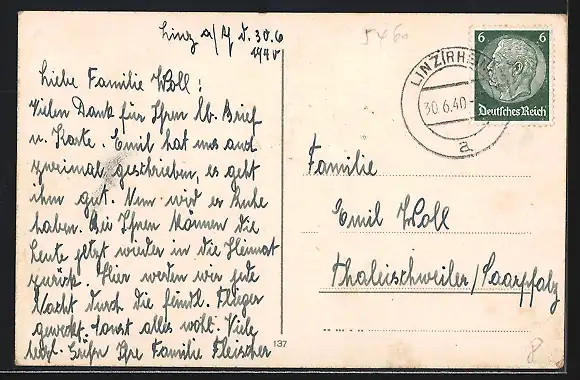 Linz a/R d. 30.6
1940
Liebe Familie Woll!
Vielen Dank für Ihren lb. Brief
u. Karte. Emil hat uns auch
zweimal geschrieben, es geht
ihm gut. Nun wird es Ruhe
haben. Bei Ihnen können die
Leute jetzt wieder in die Heimat
zurück. Hier werden wir jede
Nacht durch die feindl. Flieger
geweckt, sonst alles wohl. Viele
herzl. Grüße Ihre Familie Fleischer
137
LINZ (RHEIN)
30.6.40
a
6 6
Deutsches Reich
Familie
Emil Woll
Thaleischweiler/Saarpfalz